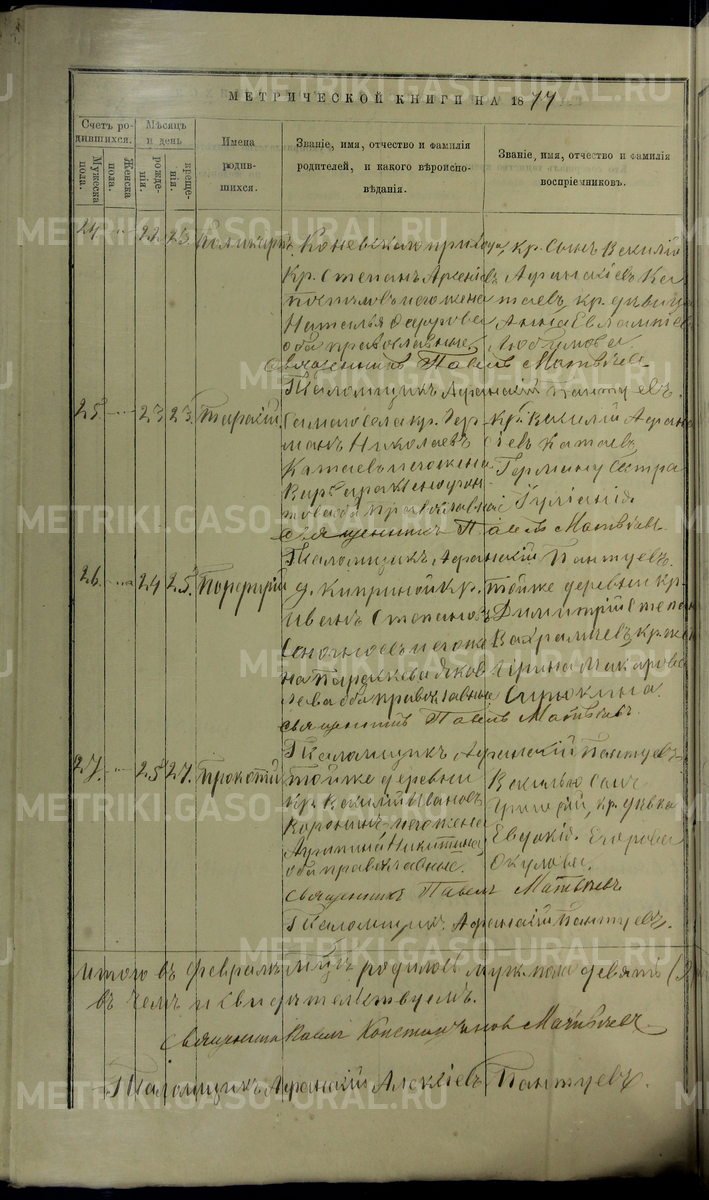 МЕТРИЧЕСКОЙ КНИГИ НА 1877
Счетъ родившихся. Мѣсяцъ и день Имена родившихся. Званіе, имя, отчество и фамилія родителей, и какого вѣроисповѣданія. Званіе, имя, отчество и фамилія воспріемниковъ.
Мужеска пола. Женска пола. рожденія. крещенія.
24 22 23 Поликарпъ Коневскаго прихода,
кр. Степанъ
и его жена
Наталья
оба православные.
кр. сынъ Василій
Афанасіевъ Катаевъ, кр. дѣвица
Анна
Священникъ Павелъ Матвѣевъ
Псаломщикъ Афанасій Пантуевъ.
25. 23 23. Тарасій. Самаго села кр. Германъ Николаевъ
Катаевъ и его жена
Варвара
оба православные
кр. Василій Афанасіевъ Катаевъ
Германа сестра
Іуліанія.
Священникъ Павелъ Матвѣевъ.
Псаломщикъ Афанасій Пантуевъ.
26. 24 25. Порфирій д. Киприной кр.
Иванъ Степановъ
и его жена Параскева
оба православные
тойже деревни кр.
Димитрій Степан
Вахрамѣевъ, кр. жена
Ирина Макарова
Сирюкина.
Священникъ Павелъ Матвѣевъ.
Псаломщикъ Афанасій Пантуевъ
27. 25 27. Прокопій тойже деревни
кр. Василій Ивановъ
Воронинъ и его жена
Агрипина Никитина,
оба православные.
Васильев сынъ
Григорій, кр. дѣвка
Евдокія Егорова
Окулова.
Священникъ Павелъ Матвѣевъ
Псаломщикъ Афанасій Пантуевъ.
Итого въ Февралѣ м-цѣ родилось муж. пола девять (9)
въ чемъ и свидѣтельствуемъ.
Священникъ Павелъ Константиновъ Матвѣевъ
Псаломщикъ Афанасій Алексіевъ Пантуевъ.
METRIKI.GASO-URAL.RU